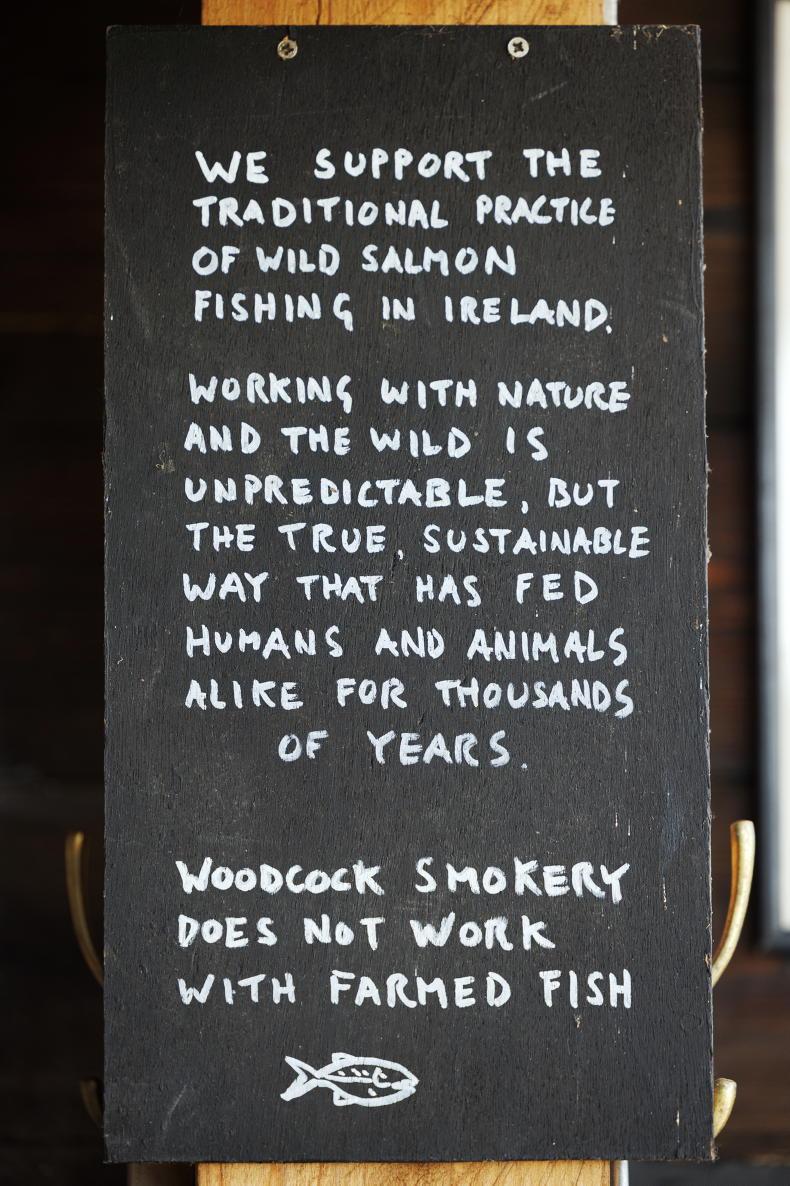 WE SUPPORT THE
TRADITIONAL PRACTICE
OF WILD SALMON
FISHING IN IRELAND.
WORKING WITH NATURE
AND THE WILD IS
UNPREDICTABLE, BUT
THE TRUE, SUSTAINABLE
WAY THAT HAS FED
HUMANS AND ANIMALS
ALIKE FOR THOUSANDS
OF YEARS.
WOODCOCK SMOKERY
DOES NOT WORK
WITH FARMED FISH